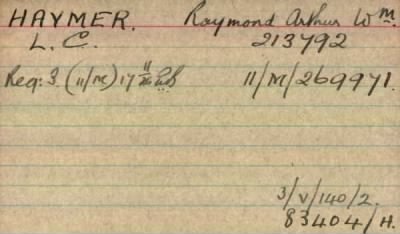 HAYMER. Raymond Arthur Wm.
L.C. 213792
Req: 3. (11/M) 17 11/M/269971.
3/V/140/2.
83404/H.